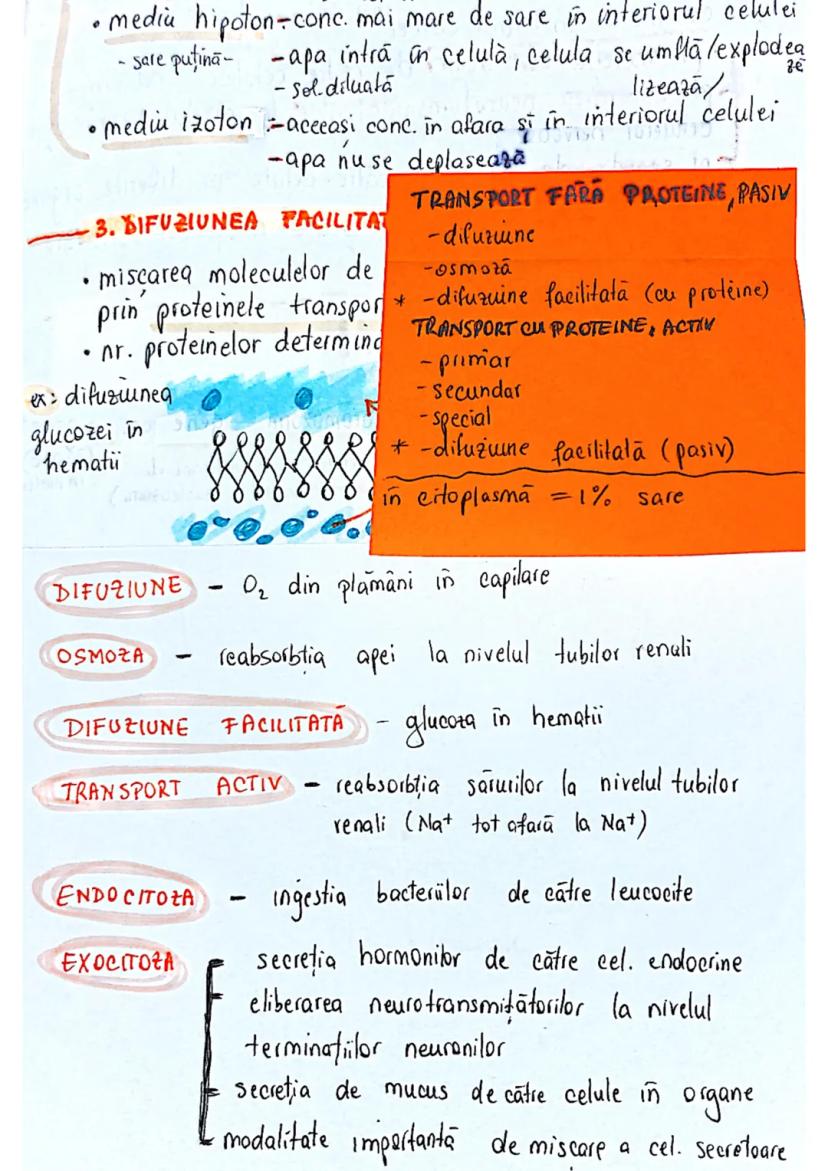 • mediu hipoton - conc. mai mare de sare în interiorul celulei
- sare puțină - - apa intră în celulă, celula se umflă/explodea
ză
- sol. diluată lizează/
• mediu izoton :- aceeași conc. în afara și în interiorul celulei
- apa nu se deplasează
3. DIFUZIUNEA FACILITAT
• miscarea moleculelor de
prin proteinele transpor
• nr. proteinelor determină
ex: difuziunea
glucozei în
hematii
TRANSPORT FĂRĂ PROTEINE, PASIV
- difuziune
- osmoză
* - difuzuine facilitată (cu protéine)
TRANSPORT CU PROTEINE, ACTIV
- primar
- secundar
- special
* - difuziune facilitată (pasiv)
în citoplasmă = 1% sare
DIFUZIUNE - O₂ din plămâni în capilare
OSMOZA - reabsorbția apei la nivelul tubilor renali
DIFUZIUNE FACILITATĂ - glucoza în hematii
TRANSPORT ACTIV - reabsorbția sărurilor la nivelul tubilor
renali (Na⁺ tot afară la Na⁺)
ENDOCITOZA - ingestia bacteriilor de către leucocite
EXOCITOZA secreția hormonilor de către cel. endocrine
eliberarea neurotransmițătorilor la nivelul
terminațiilor neuronilor
secreția de mucus de către celule în organe
modalitate importantă de miscare a cel. secretoare